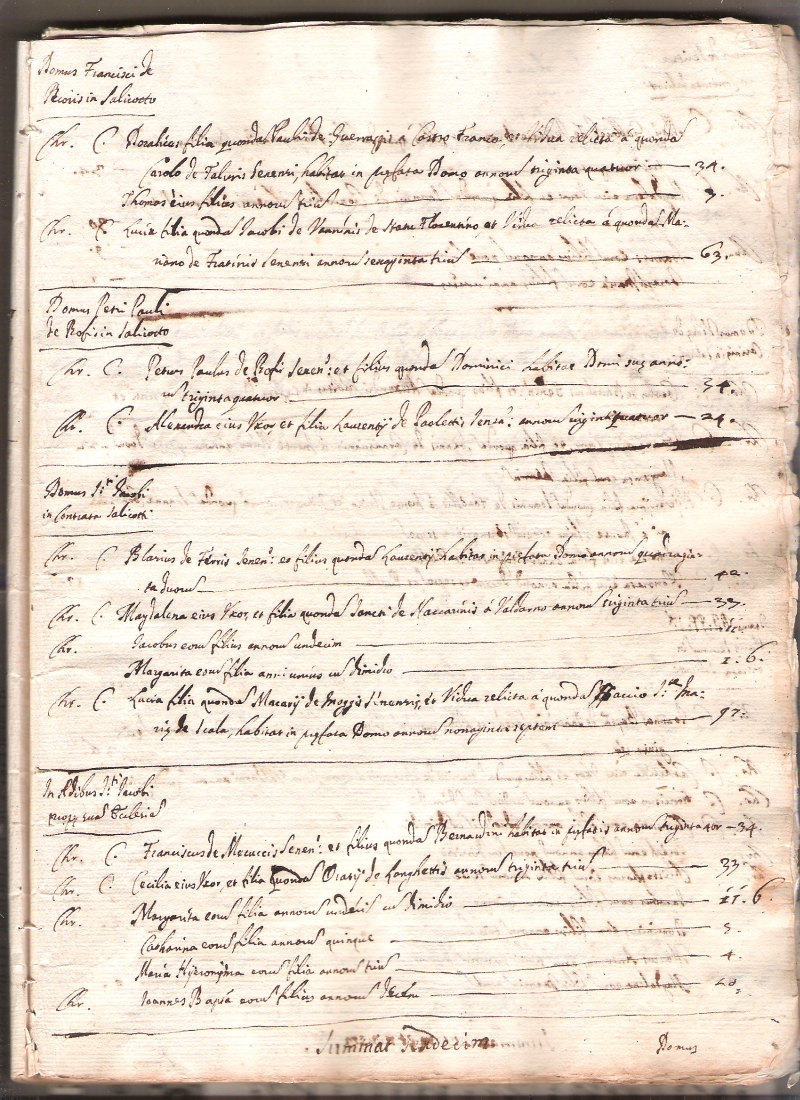 Domus Francisci de
Pecoris in Salicotto
Chr. C. filia quondam Pauli de à Castro Franco, et Vidua relicta à quondam
Carolo de Senensi, habitat in præfata Domo annorum triginta quatuor — 34.
Thomas eius filius annorum trium — 3.
Chr. C. Lucia filia quondam Jacobi de Vanninis de Statu Florentino, et Vidua relicta à quondam Ma:
riano de Senensi annorum sexaginta trium — 63.
Domus Petri Pauli
de in Salicotto
Chr. C. Petrus Paulus de Senen: et filius quondam Dominici habitat Domi suæ anno:
rum triginta quatuor — 34.
Chr. C. Alexandra eius Uxor, et filia Laurentij de Paolettis annorum viginti quatuor — 24.
Domus S.ti Jacobi
in Contrata Salicotti
Chr. C. Blasius de Senen: et filius quondam Laurentij habitat in præfata Domo annorum quadragin:
ta duorum — 42.
Chr. C. Magdalena eius Uxor, et filia quondam Sancti de à Valdarno annorum trium — 33.
Chr. Jacobus eorum filius annorum undecim — 11.
Margarita eorum filia anni unius cum dimidio — 1: 6.
Chr. C. Lucia filia quondam Macarij de Senensis, et Vidua relicta à quondam S.tæ Ma:
riæ de Scala, habitat in præfata Domo annorum nonaginta septem — 97:
In Ædibus S.ti Jacobi
prope suas Ecclesias
Chr. C. Franciscus de Meuccis Senen: et filius quondam Bernardini habitat in præfatis annorum triginta — 34.
Chr. C. Cecilia eius Uxor, et filia quondam de annorum triginta trium — 33
Chr. Margarita eorum filia annorum undecim cum dimidio — 11. 6.
Catharina eorum filia annorum quinque — 5.
Maria Hijeronijma eorum filia annorum — 4.
Chr. Joannes Bap.ta eorum filius annorum decem — 10.
Summat sexdecim
Domus